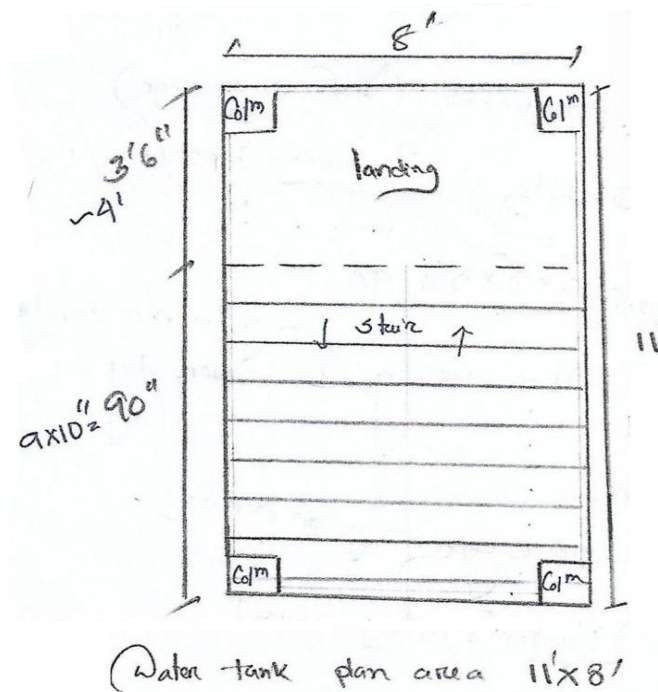 8"
Colᵐ Colᵐ
3'6"
~4'
landing
stair
11
9x10"= 90"
Colᵐ Colᵐ
Water tank plan area 11'x8'